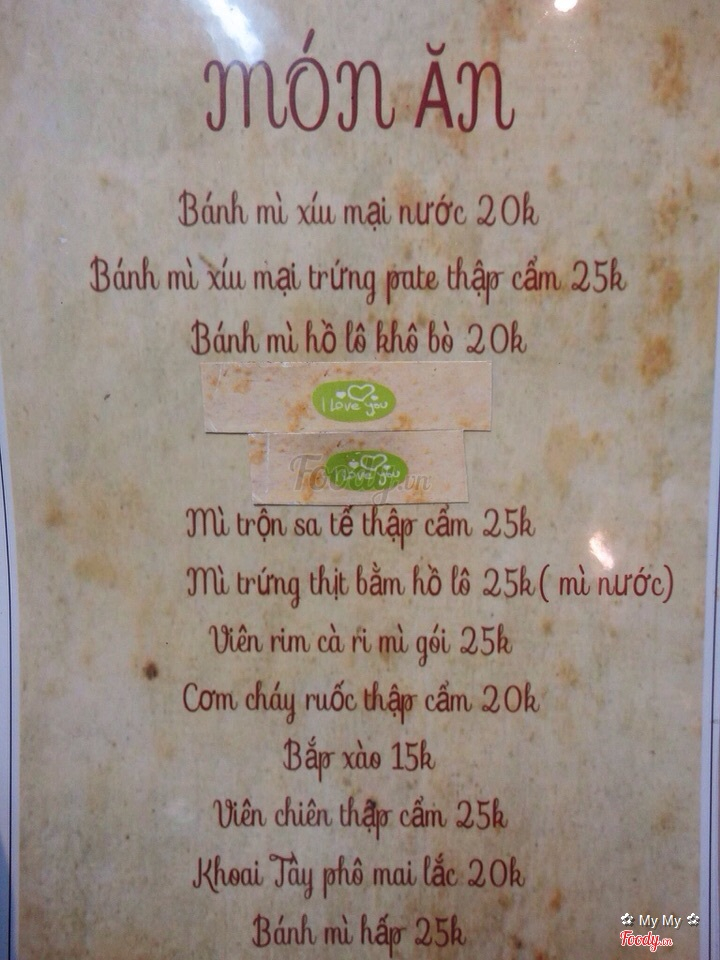 MÓN ĂN
Bánh mì xíu mại nước 20k
Bánh mì xíu mại trứng pate thập cẩm 25k
Bánh mì hồ lô khô bò 20k
I Love you
I Love you
Foody.vn
Mì trộn sa tế thập cẩm 25k
Mì trứng thịt bằm hồ lô 25k ( mì nước)
Viên rim cà ri mì gói 25k
Cơm cháy ruốc thập cẩm 20k
Bắp xào 15k
Viên chiên thập cẩm 25k
Khoai Tây phô mai lắc 20k
Bánh mì hấp 25k
My My
Foody.vn